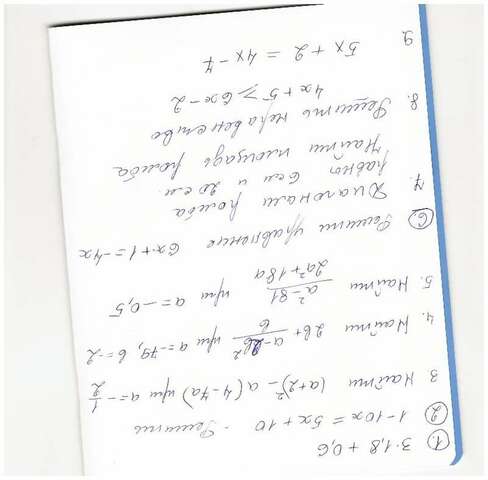 1. 3·1,8 + 0,6
2. 1-10x = 5x + 10 - Решить
3 Найти (a+2)² - a(4-7a) при a = -1/2
4. Найти 2b + (a-2b²)/b при a = -79, b = -2
5. Найти (a²-81)/(2a²+18a) при a = -0,5
6. Решить уравнение 6x+1 = -4x
7. Диагонали ромба
равны 6см и 20 см.
Найти площадь ромба
8. Решить неравенство
4x + 5 ≥ 6x - 2
9 5x + 2 = 4x - 7